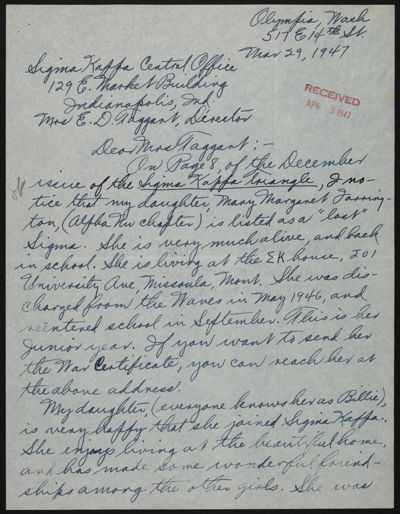 Olympia, Wash
517 E 14th St.
Mar 29, 1947
Sigma Kappa Central Office
129 E. Market Building
Indianapolis, Ind
Mrs E. D. Taggart, Director
RECEIVED
APR 3 1947
Dear Mrs Taggart:-
On Page 8, of the December
issue of the Sigma Kappa Triangle, I no-
tice that my daughter, Mary Margaret Farring-
ton, (Alpha Nu chapter) is listed as a "lost"
Sigma. She is very much alive, and back
in school. She is living at the ΣK house, 201
University Ave, Missoula, Mont. She was dis-
charged from the Waves in May 1946, and
reentered school in September. This is her
Junior year. If you want to send her
the War Certificate, you can reach her at
the above address.
My daughter, (everyone knows her as Billie),
is very happy that she joined Sigma Kappa.
She enjoys living at the beautiful home,
and has made some wonderful friend-
ships among the other girls. She was